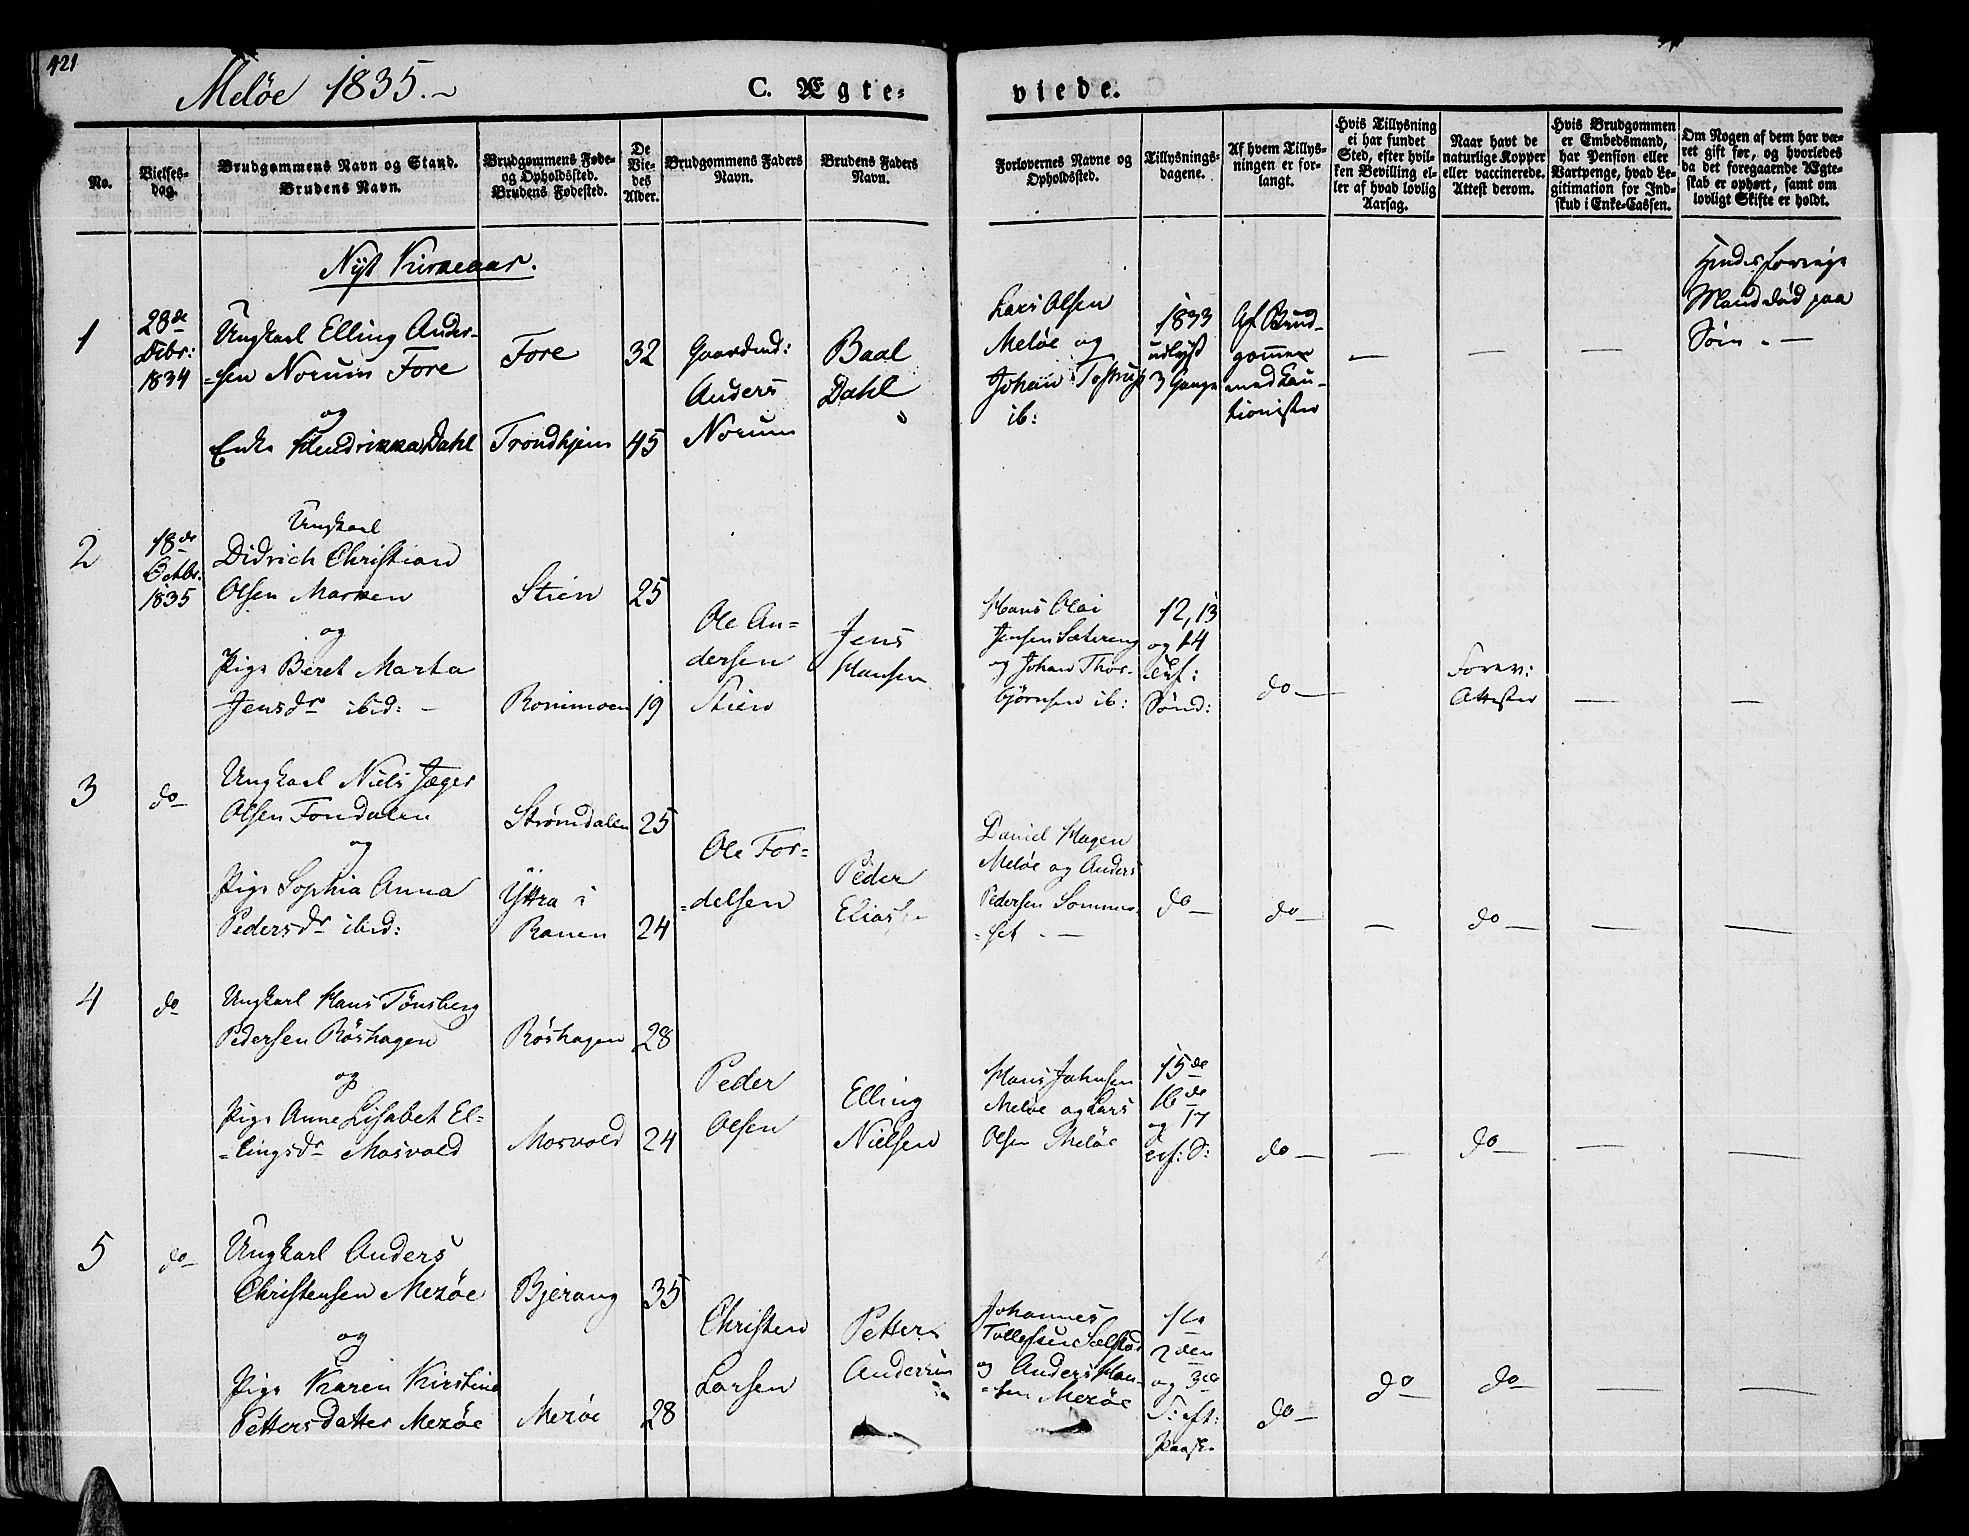 421
Meløe 1835.
C. Ægte=
viede.
No.
Vielses-
dag.
Brudgommens Navn og Stand.
Brudens Navn.
Brudgommens Føde-
og Opholdssted.
Brudens Fødested.
De
Vie-
des
Alder.
Brudgommens Faders
Navn.
Brudens Faders
Navn.
Forlovernes Navne og
Opholdssted.
Tillysnings-
dagene.
Af hvem Tillys-
ningen er for-
langt.
Hvis Tillysning
ei har fundet
Sted, efter hvil-
ken Bevilling el-
ler af hvad lovlig
Aarsag.
Naar havt de
naturlige Kopper
eller vaccinerede.
Attest derom.
Hvis Brudgommen
er Embedsmand,
har Pension eller
Vartpenge, hvad Le-
gitimation for Ind-
skud i Enke-Cassen.
Om Nogen af dem har væ-
ret gift før, og hvorledes
da det foregaaende Ægte-
skab er ophørt, samt om
lovligt Skifte er holdt.
Nyt Kirkeaar.
1
28de
Debr:
1834
Ungkarl Elling Ander-
=sen Norum Fore
og
Enke Hendrikka Dahl
Fore
Trondhjem
32
45
Gaardmd:
Anders
Norum
Baal
Dahl
Lars Olsen
Meløe og
Johan Tostrup
ib:
1833
udlyst
3 Gange
Af Brud-
gommen
med Cau-
tionister
—
—
—
Hendes forrige
Mand død paa
Søen. —
2
18de
Octbr:
1835
Ungkarl
Didrich Christian
Olsen Marken
og
Pige Beret Marta
Jensdr ibid: —
Stien
Ronimoen
25
19
Ole An=
dersen
Stien
Jens
Hansen
Hans Olai
Jensen Sætereng
og Johan Thor-
bjørnsen ib:
12, 13
og 14
Sønd:
do —
Forev:
Attester
—
—
3
do
Ungkarl Niels Jæger
Olsen Fondalen
og
Pige Sophia Anna
Pedersdr ibid:
Strømdalen
Yttra i
Ranen
25
24
Ole For=
=delsen
Peder
Eliassen
Daniel Hagen
Meløe og Anders
Pedersen Sommer-
=set. —
do —
do —
—
do —
—
—
4
do
Ungkarl Hans Tønsberg
Pedersen Røshagen
og
Pige Anne Lisabet El=
=lingsdr Mosvold
Røshagen
Mosvold
28
24
Peder
Olsen
Elling
Nielsen
Hans Johnsen
Meløe og Lars
Olsen Meløe
15de
16de
og 17
do —
—
do —
—
—
5
do
Ungkarl Anders
Christensen Mesøe
og
Pige Karen Kirstine
Pettersdatter Mesøe
Bjerang
Mesøe
35
28
Christen
Larsen
Petter
Andersen
Johannes
Tollefsen Selstad
og Anders Han-
=sen Mesøe
1te
2den
og 3de
S: eft:
Paaske
do —
do —
do —
—
—